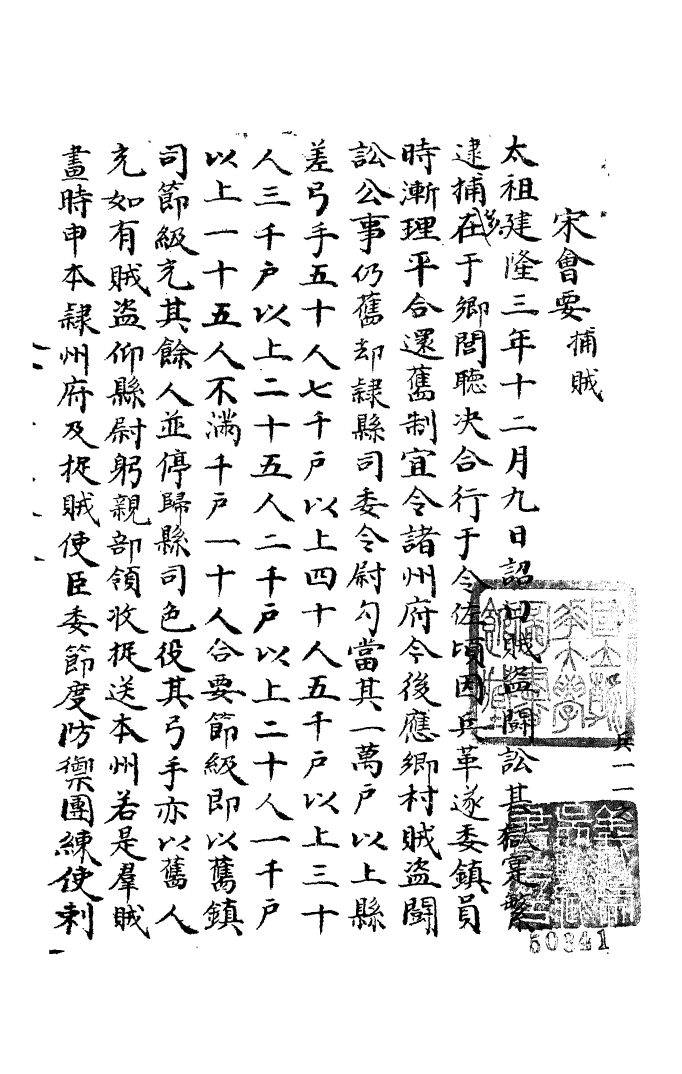 宋會要 捕賊
太祖建隆三年十二月九日詔曰賊盜鬪訟其獄寔繁
逮捕在于鄉閭聽决合行于令佐頃因兵革遂委鎮員
時漸理平合還舊制宜令諸州府今後應鄉村賊盜鬪
訟公事仍舊却隸縣司委令尉勾當其一萬戶以上縣
差弓手五十人七千戶以上四十人五千戶以上三十
人三千戶以上二十五人二千戶以上二十人一千戶
以上一十五人不滿千戶一十人合要節級即以舊鎮
司節級充其餘人並停歸縣司色役其弓手亦以舊人
充如有賊盜仰縣尉躬親部領收捉送本州若是羣賊
晝時申本隸州府及捉賊使臣委節度防禦團練使刺
兵一一之
國立北平圖書館
50341